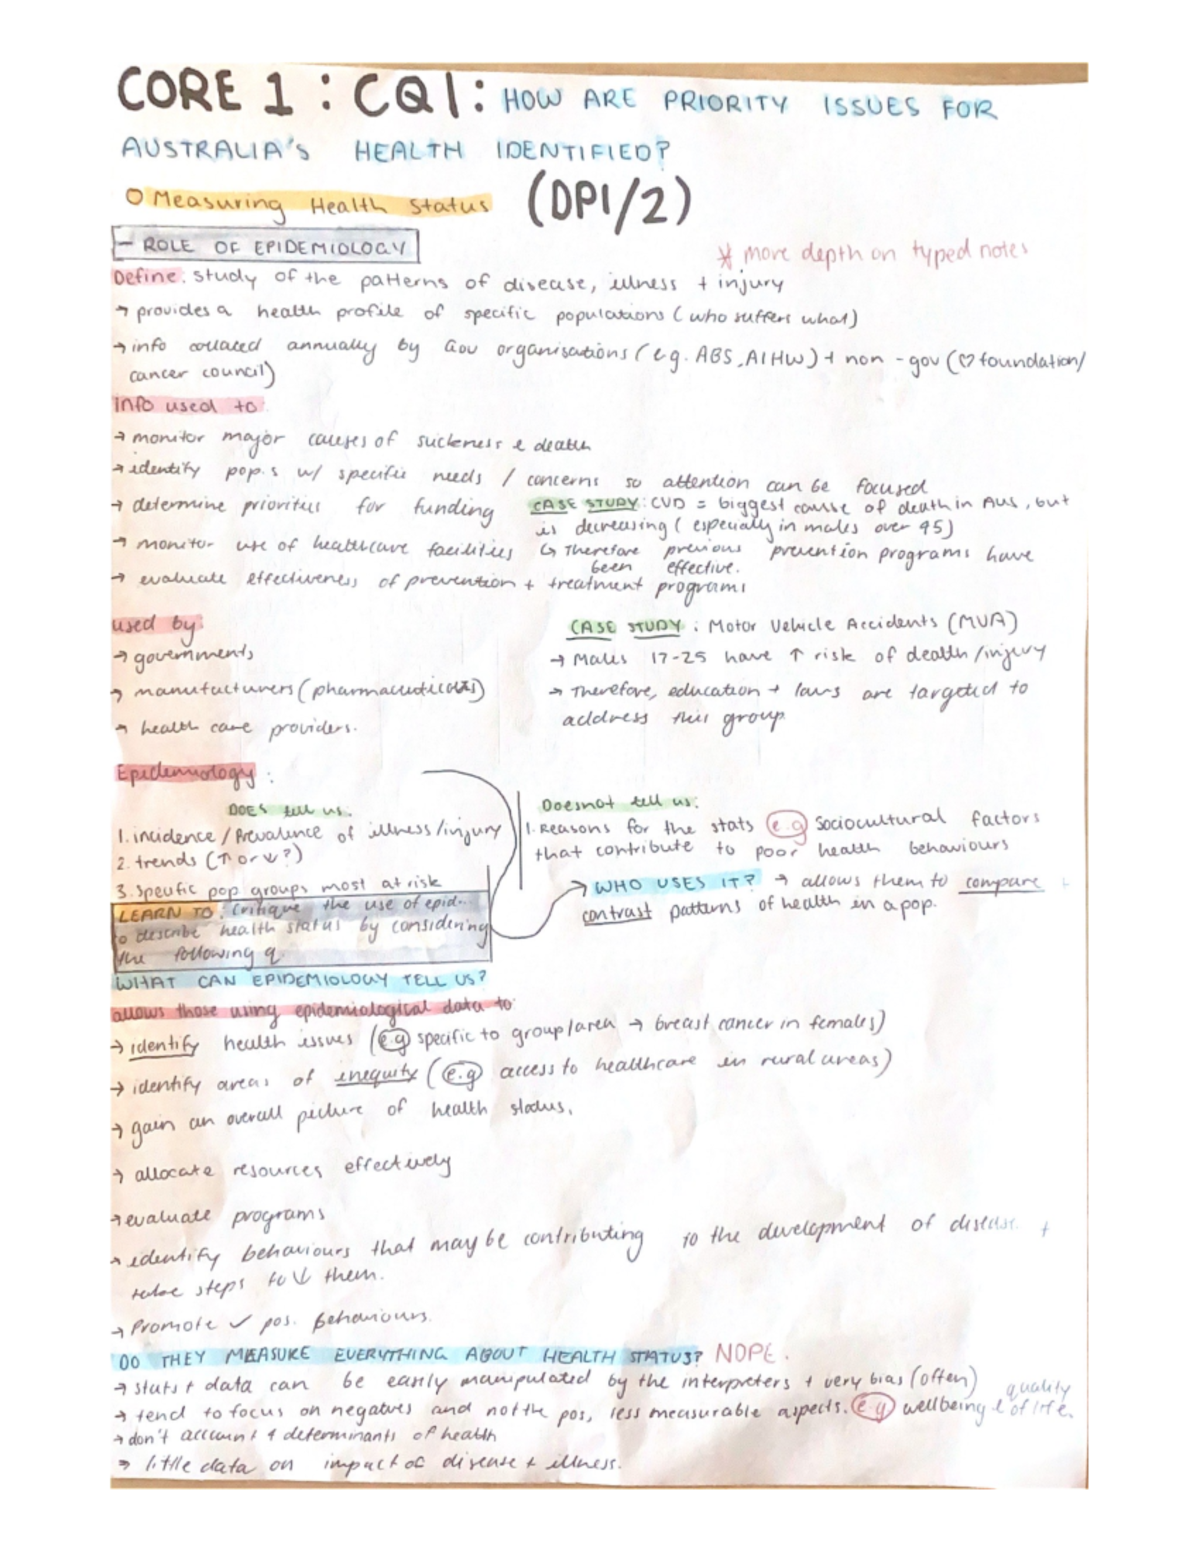 CORE 1 : CQ1: HOW ARE PRIORITY ISSUES FOR
AUSTRALIA'S HEALTH IDENTIFIED?
O Measuring Health Status (DP1/2)
- ROLE OF EPIDEMIOLOGY
* more depth on typed notes
Define: study of the patterns of disease, illness + injury
→ provides a health profile of specific populations (who suffers what)
→ info collated annually by Gov organisations (e.g. ABS, AIHW) + non-gov (♡ foundation/
cancer council)
info used to:
→ monitor major causes of sickness & death
→ identify pop.s w/ specific needs / concerns so attention can be focused
→ determine priorities for funding
→ monitor use of healthcare facilities
→ evaluate effectiveness of prevention + treatment programs
CASE STUDY: CVD = biggest cause of death in Aus, but
is decreasing (especially in males over 45)
↳ Therefore previous prevention programs have
been effective.
used by:
→ governments
→ manufacturers (pharmaceuticals)
→ health care providers.
CASE STUDY: Motor Vehicle Accidents (MVA)
→ Males 17-25 have ↑ risk of death/injury
→ Therefore, education + laws are targeted to
address this group
Epidemiology:
DOES tell us:
1. incidence / Prevalence of illness/injury
2. trends (↑ or ↓?)
3. Specific pop groups most at risk
Doesnot tell us:
1. Reasons for the stats e.g sociocultural factors
that contribute to poor health behaviours
LEARN TO: Critique the use of epid..
to describe health status by considering
the following q
→ WHO USES IT? → allows them to compare +
contrast patterns of health in a pop.
WHAT CAN EPIDEMIOLOGY TELL US?
allows those using epidemiological data to:
→ identify health issues (e.g specific to group/area → breast cancer in females)
→ identify areas of inequity (e.g access to healthcare in rural areas)
→ gain an overall picture of health status.
→ allocate resources effectively
→ evaluate programs
→ identify behaviours that may be contributing to the development of disease +
take steps to ↓ them.
→ Promote ✓ pos. Behaviours.
DO THEY MEASURE EVERYTHING ABOUT HEALTH STATUS? NOPE.
→ stats + data can be easily manipulated by the interpreters + very bias (often)
→ tend to focus on negatives and not the pos, less measurable aspects. e.g wellbeing & quality of life.
→ don't account 4 determinants of health
→ little data on impact of disease + illness.